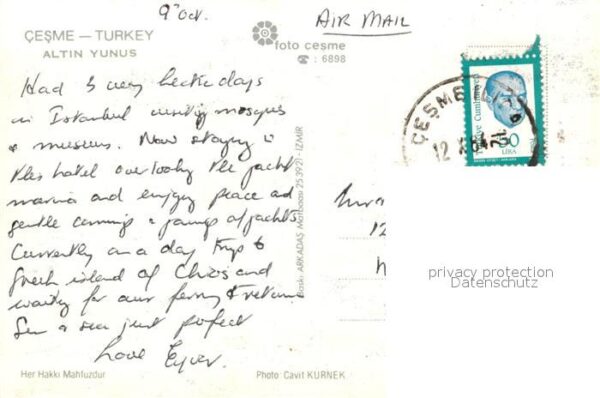 9th Oct.
AIR MAIL
ÇEŞME — TURKEY
ALTIN YUNUS
foto çeşme
☎ : 6898
Had 3 very hectic days
in Istanbul visiting mosques
& museums. Now staying in
this hotel overlooking the yacht
marina and enjoying peace and
gentle comings & goings of yachts
Currently on a day trip to
Greek island of Chios and
waiting for our ferry to return
Sun & sea just perfect
Love
Her Hakkı Mahfuzdur
Photo: Cavit KÜRNEK
Baskı: ARKADAŞ Matbaası 25 39 21 - İZMİR
Türkiye Cumhuriyeti
50
LİRA
ÇEŞME
12
privacy protection
Datenschutz